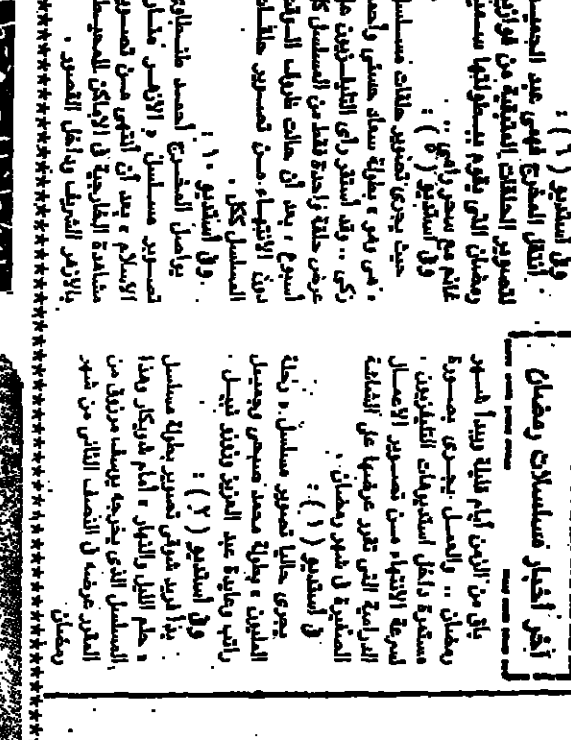 آخر أخبار مسلسلات رمضان
باق من الزمن أيام قليلة ويبدأ شهر
رمضان .. والعمل يجرى بصورة
مستمرة داخل استديوهات التليفزيون .
لسرعة الانتهاء من تصوير الأعمال
الدرامية التى تقرر عرضها على الشاشة
الصغيرة فى شهر رمضان .
فى استديو ( ١ ) :
يجرى حاليا تصوير مسلسل « رحلة
المليون » بطولة محمد صبحى وجميل
راتب وعايدة عبد العزيز ونبيل
وفى استديو ( ٢ ) :
بدأ فريد شوقى تصوير بطولة مسلسل
« حلم الليل والنهار » أمام شويكار وهذا
المسلسل الذى يخرجه يوسف مرزوق من
المقرر عرضه فى النصف الثانى من شهر
رمضان
وفى استديو ( ٦ ) :
انتقل المخرج فهمى عبد الحميد
لتصوير الحلقات المتبقية من فوازير
رمضان التى يقوم ببطولتها سمير
غانم مع سحر رامى ..
وفى استديو ( ٥ ) :
حيث يجرى تصوير حلقات مسلسل
« هى وهو » بطولة سعاد حسنى وأحمد
زكى .. وقد استقر رأى التليفزيون على
عرض حلقة واحدة فقط من المسلسل كل
أسبوع ، بعد أن حالت ظروف الوقت
دون الانتهاء من تصوير حلقات
المسلسل ككل .
وفى استديو ١٠ :
يواصل المخرج أحمد طنطاوى
تصوير مسلسل « الأزهر منارة
الاسلام » بعد أن انتهى من تصوير
مشاهده الخارجية فى الأماكن المحيطة
بالأزهر الشريف وداخل القصور .